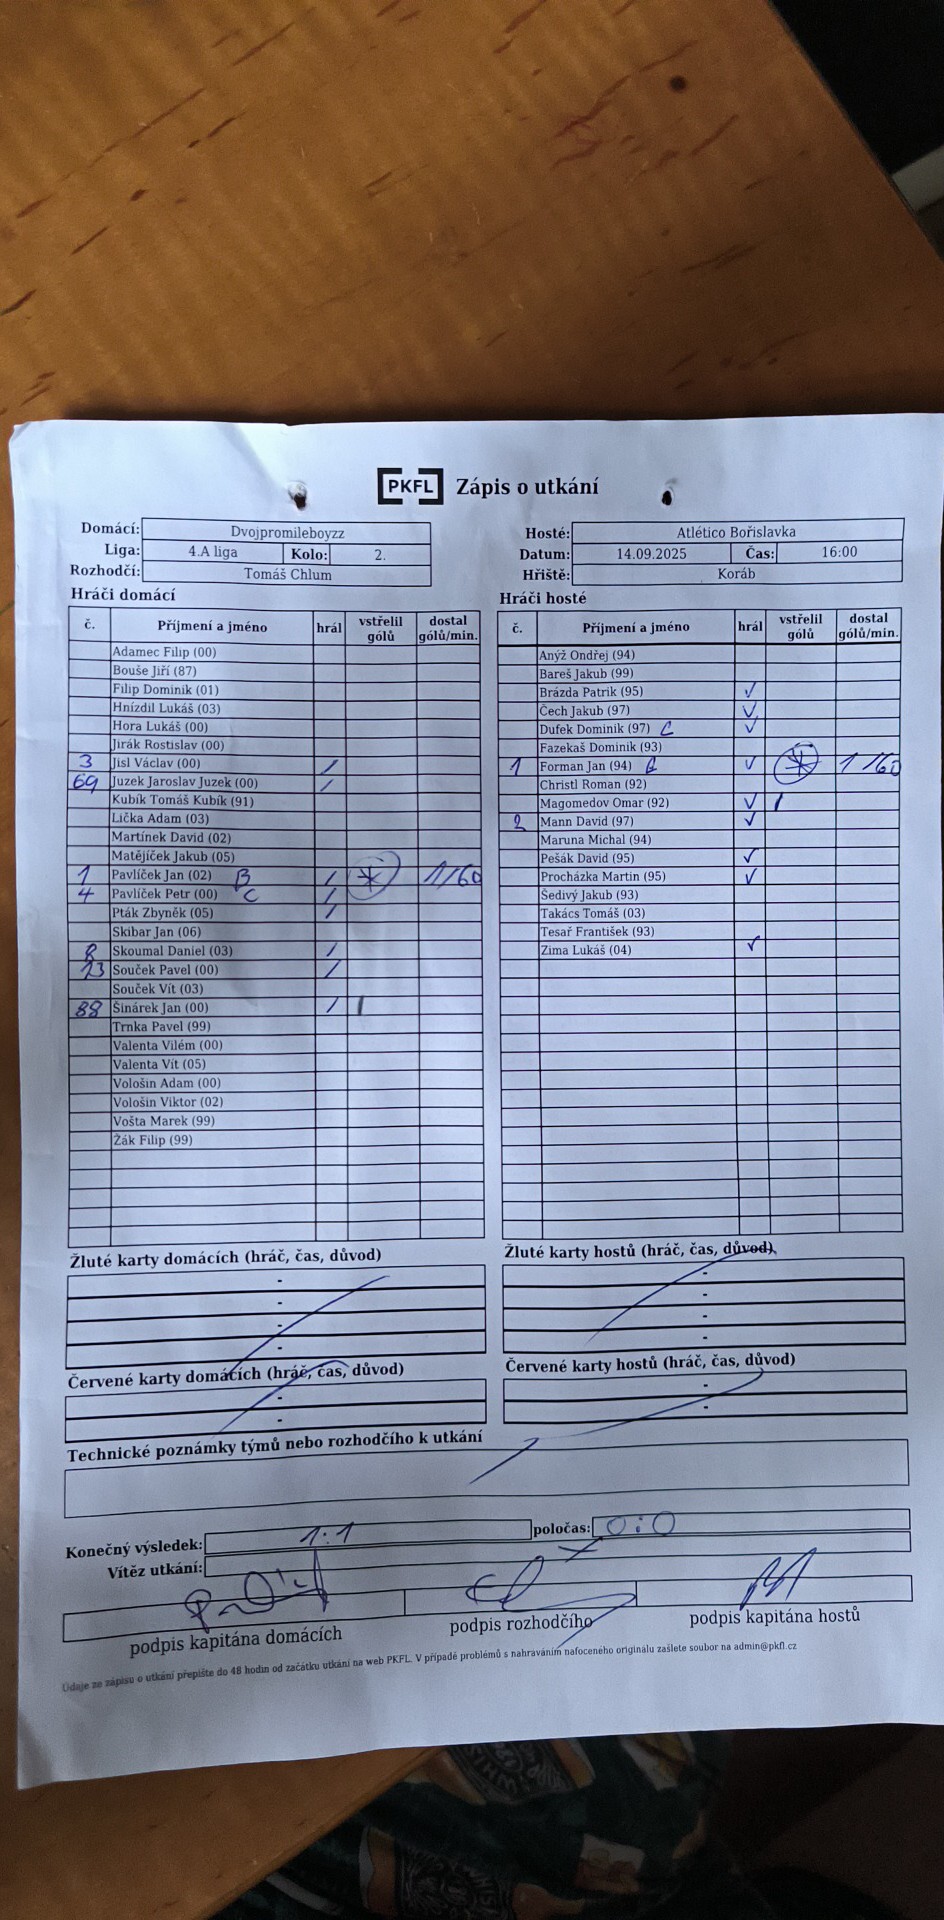 PKFL Zápis o utkání
Domácí: Dvojpromileboyzz
Liga: 4.A liga Kolo: 2.
Rozhodčí: Tomáš Chlum
Hosté: Atlético Bořislavka
Datum: 14.09.2025 Čas: 16:00
Hřiště: Koráb
Hráči domácí
č. Příjmení a jméno hrál vstřelil gólů dostal gólů/min.
Adamec Filip (00)
Bouše Jiří (87)
Filip Dominik (01)
Hnízdil Lukáš (03)
Hora Lukáš (00)
Jirák Rostislav (00)
3 Jisl Václav (00) /
69 Juzek Jaroslav Juzek (00) /
Kubík Tomáš Kubík (91)
Lička Adam (03)
Martínek David (02)
Matějíček Jakub (05)
1 Pavlíček Jan (02) B / * 1/60
4 Pavlíček Petr (00) C /
Pták Zbyněk (05) /
Skibar Jan (06)
8 Skoumal Daniel (03) /
23 Souček Pavel (00) /
Souček Vít (03)
88 Šinárek Jan (00) / |
Trnka Pavel (99)
Valenta Vilém (00)
Valenta Vít (05)
Vološin Adam (00)
Vološin Viktor (02)
Vošta Marek (99)
Žák Filip (99)
Hráči hosté
č. Příjmení a jméno hrál vstřelil gólů dostal gólů/min.
Anýž Ondřej (94)
Bareš Jakub (99)
Brázda Patrik (95) ✓
Čech Jakub (97) ✓
Dufek Dominik (97) C ✓
Fazekaš Dominik (93)
1 Forman Jan (94) ✓ * 1/60
Christl Roman (92)
Magomedov Omar (92) ✓ |
2 Mann David (97) ✓
Maruna Michal (94)
Pešák David (95) ✓
Procházka Martin (95) ✓
Šedivý Jakub (93)
Takács Tomáš (03)
Tesař František (93)
Zima Lukáš (04) ✓
Žluté karty domácích (hráč, čas, důvod)
-
-
-
-
Žluté karty hostů (hráč, čas, důvod)
-
-
-
-
Červené karty domácích (hráč, čas, důvod)
-
-
Červené karty hostů (hráč, čas, důvod)
-
-
Technické poznámky týmů nebo rozhodčího k utkání
Konečný výsledek: 1:1 poločas: 0:0
Vítěz utkání:
podpis kapitána domácích podpis rozhodčího podpis kapitána hostů
Údaje ze zápisu o utkání přepište do 48 hodin od začátku utkání na web PKFL. V případě problémů s nahráváním nafoceného originálu zašlete soubor na admin@pkfl.cz